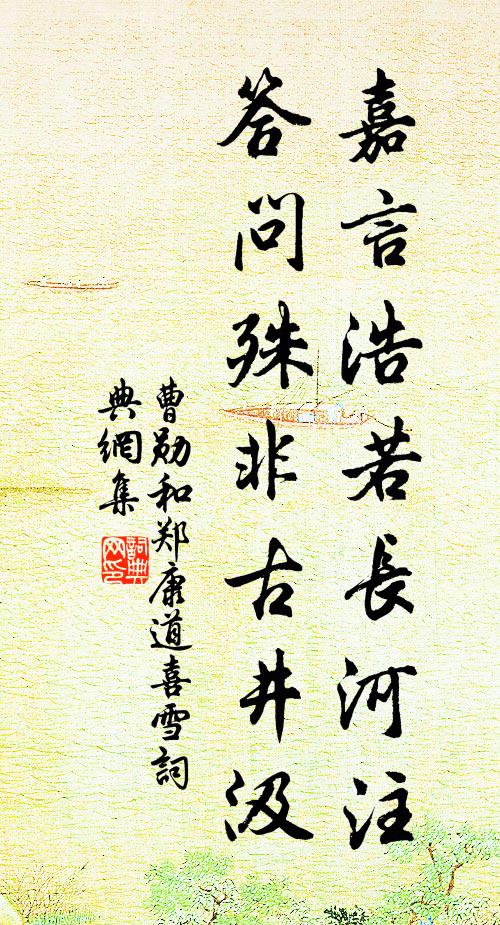 嘉言浩若長河注
答問殊非古井汲
曹勛和郑康道喜雪詞
典網集
詞典网印